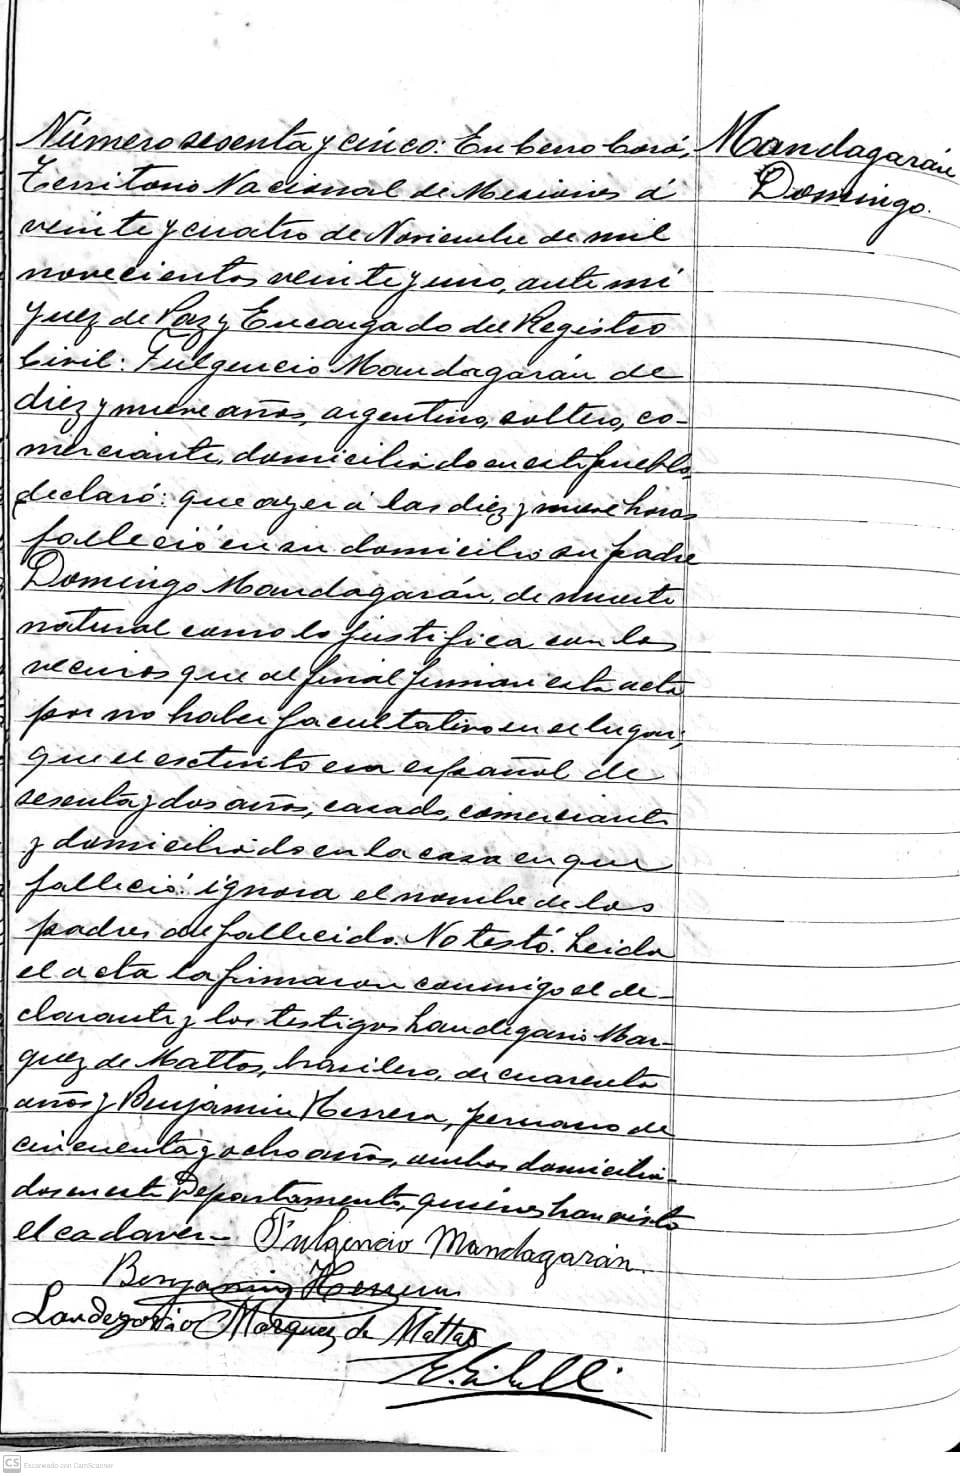 Número sesenta y cinco: En Cerro Corá,
Mandagarán
Domingo.
Territorio Nacional de Misiones á
veinte y cuatro de Noviembre de mil
novecientos veinte y uno, ante mi
Juez de Paz y Encargado del Registro
Civil: Fulgencio Mandagarán de
diez y nueve años, argentino, soltero, co-
merciante, domiciliado en este pueblo
declaró: que ayer á las diez y nueve horas
falleció en su domicilio su padre
Domingo Mandagarán, de muerte
natural como lo justifica con los
vecinos que al final firman esta acta
por no haber facultativo en el lugar;
que el extinto era español de
sesenta y dos años, casado, comerciante
y domiciliado en la casa en que
falleció: ignora el nombre de los
padres del fallecido. No testó. Leida
el acta la firmaron conmigo el de-
clarante y los testigos Laudegario Mar-
quez de Mattos, brasilero, de cuarenta
años y Benjamin Herrera, peruano de
cincuenta y ocho años, ambos domicilia-
dos en este Departamento, quienes han visto
el cadaver.- Fulgencio Mandagarán.
Benjamin Herrera
Laudegario Marquez de Mattos
CS Escaneado con CamScanner